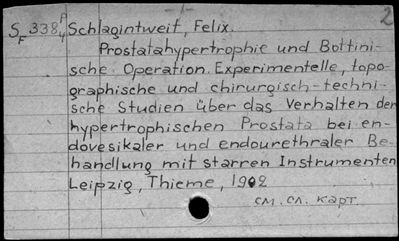 -1- 2
S_F 338 P/4 Schlagintweit, Felix.
Prostatahypertrophie und Bottini-
sche Operation. Experimentelle, topo-
graphische und chirurgisch-techni-
sche Studien über das Verhalten der
hypertrophischen Prostata bei en-
dovesikaler und endourethraler Be-
handlung mit starren Instrumenten
Leipzig, Thieme, 1902
см. сл. карт.